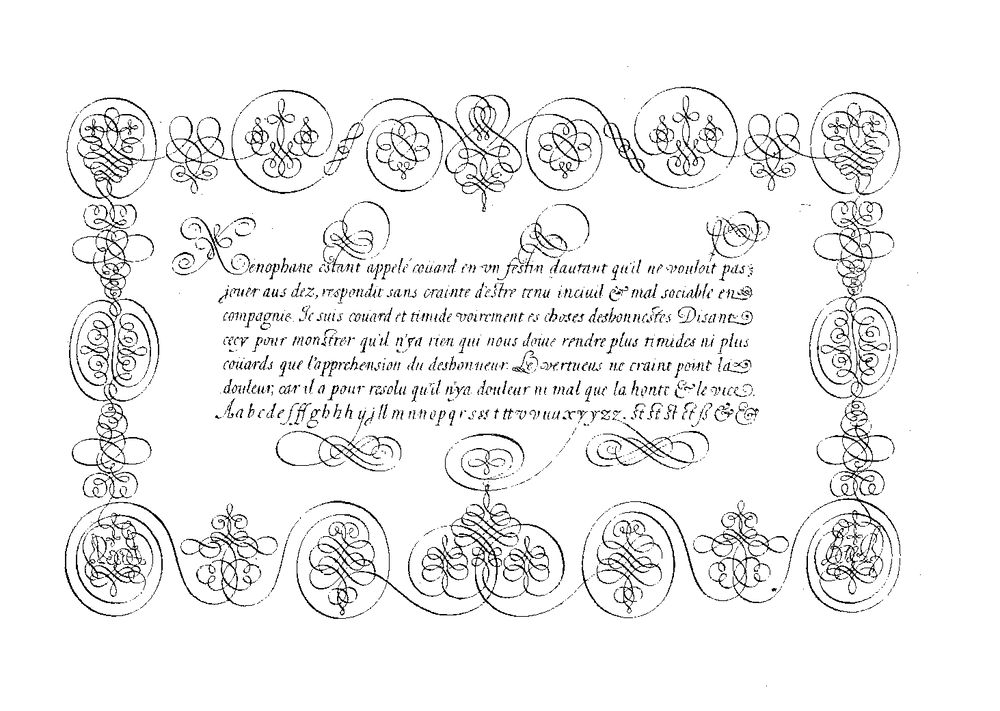 Xenophane estant appelé coüard en vn festin dautant qu'il ne vouloit pas
jouer aus dez, respondit sans crainte d'estre tenu inciuil & mal sociable en
compagnie. Je suis couard et timide voirement es choses deshonnestes Disant
cecy pour monstrer qu'il n'ya rien qui nous doiue rendre plus timides ni plus
coüards que l'apprehension du deshonneur. Le vertueus ne craint point la
douleur, car il a pour resolu qu'il n'ya douleur ni mal que la honte & le vice.
A a b c d e f ff g h h h y j l l m n n o p q r s s s t tt v v u u x y y z z. st st st st ß & &